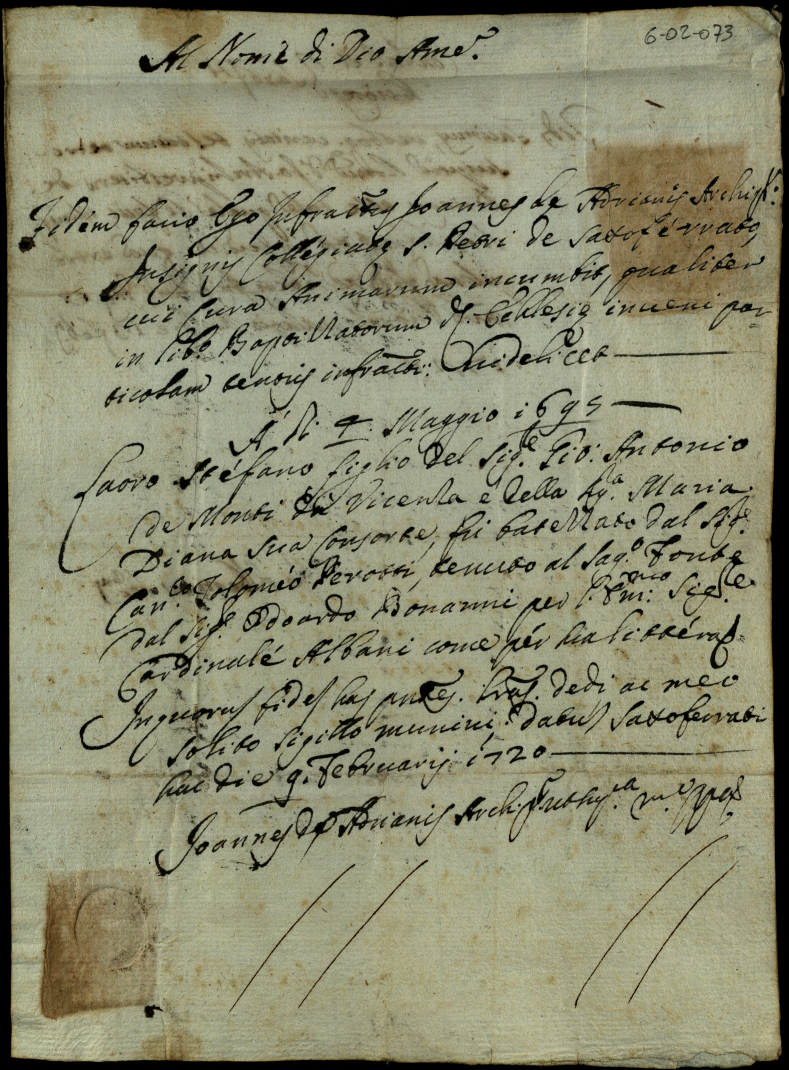 6-02-073
Al Nome di Dio Ame.
Fidem facio Ego Infractus Joannes de Adrianis Archip.
Insignis Collegiatę S. Petri de Saxoferrato,
cui cura Animarum incumbit, qualiter
in libo Baptizatorum d. Ecclesię inveni par-
ticolam tenoris infracti: Videlicet
A di 4. Maggio 1695
Stefano figlio del Sig.e Gio: Antonio
de Monti da Vicenza e della Sig.a Maria
Diana sua Consorte, fu batezzato dal Sig.e
Can.co Tolomeo Perotti, tenuto al Sag.o Fonte
dal Sig.e Odoardo Bonanni per l'Em.mo Sig.le
Cardinale Albani come per sua littera
In quorum fidem has pntes. lras. dedi ac meo
solito sigillo munivi: datum Saxoferrati
hac die 9. Februarij 1720
Joannes de Adrianis Archip.